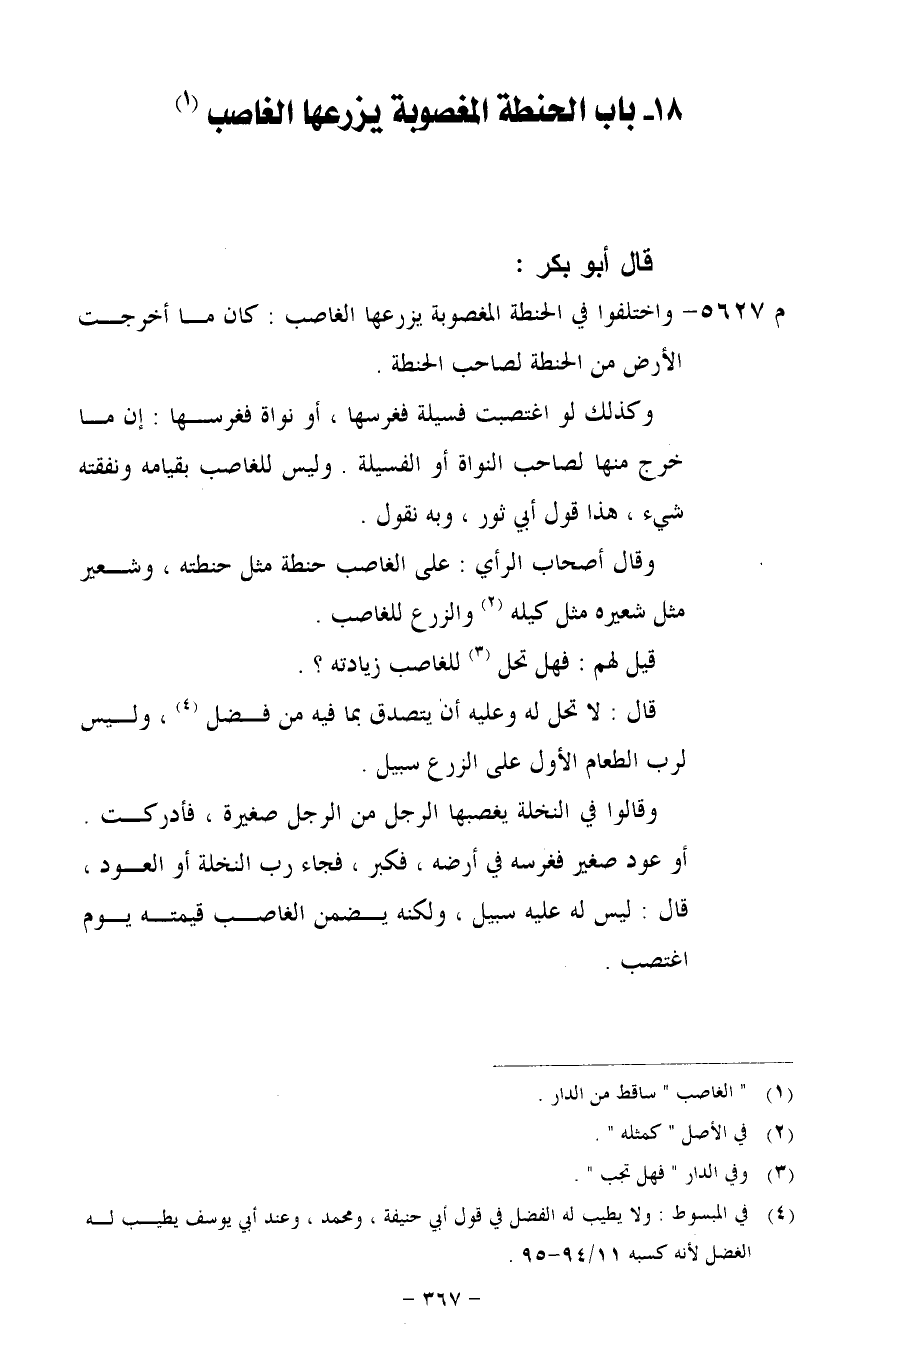 ١٨ـ باب الحنطة المغصوبة يزرعها الغاصب (١)
قال أبو بكر :
م ٥٦٢٧– واختلفوا في الحنطة المغصوبة يزرعها الغاصب : كان ما أخرجت
الأرض من الحنطة لصاحب الحنطة .
وكذلك لو اغتصبت فسيلة فغرسها ، أو نواة فغرسها : إن ما
خرج منها لصاحب النواة أو الفسيلة . وليس للغاصب بقيامه ونفقته
شيء ، هذا قول أبي ثور ، وبه نقول .
وقال أصحاب الرأي : على الغاصب حنطة مثل حنطته ، وشعير
مثل شعيره مثل كيله (٢) والزرع للغاصب .
قيل لهم : فهل تحل (٣) للغاصب زيادته ؟ .
قال : لا تحل له وعليه أن يتصدق بما فيه من فضل (٤) ، وليس
لرب الطعام الأول على الزرع سبيل .
وقالوا في النخلة يغصبها الرجل من الرجل صغيرة ، فأدركت .
أو عود صغير فغرسه في أرضه ، فكبر ، فجاء رب النخلة أو العود ،
قال : ليس له عليه سبيل ، ولكنه يضمن الغاصب قيمته يوم
اغتصب .
(١) " الغاصب " ساقط من الدار .
(٢) في الأصل " كمثله " .
(٣) وفي الدار " فهل تجب " .
(٤) في المبسوط : ولا يطيب له الفضل في قول أبي حنيفة ، ومحمد ، وعند أبي يوسف يطيب له
الفضل لأنه كسبه ٩٤/١١–٩٥ .
– ٣٦٧ –